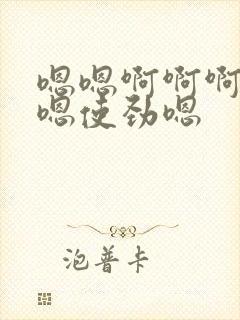 嗯嗯啊啊啊
嗯使劲嗯
泡普卡